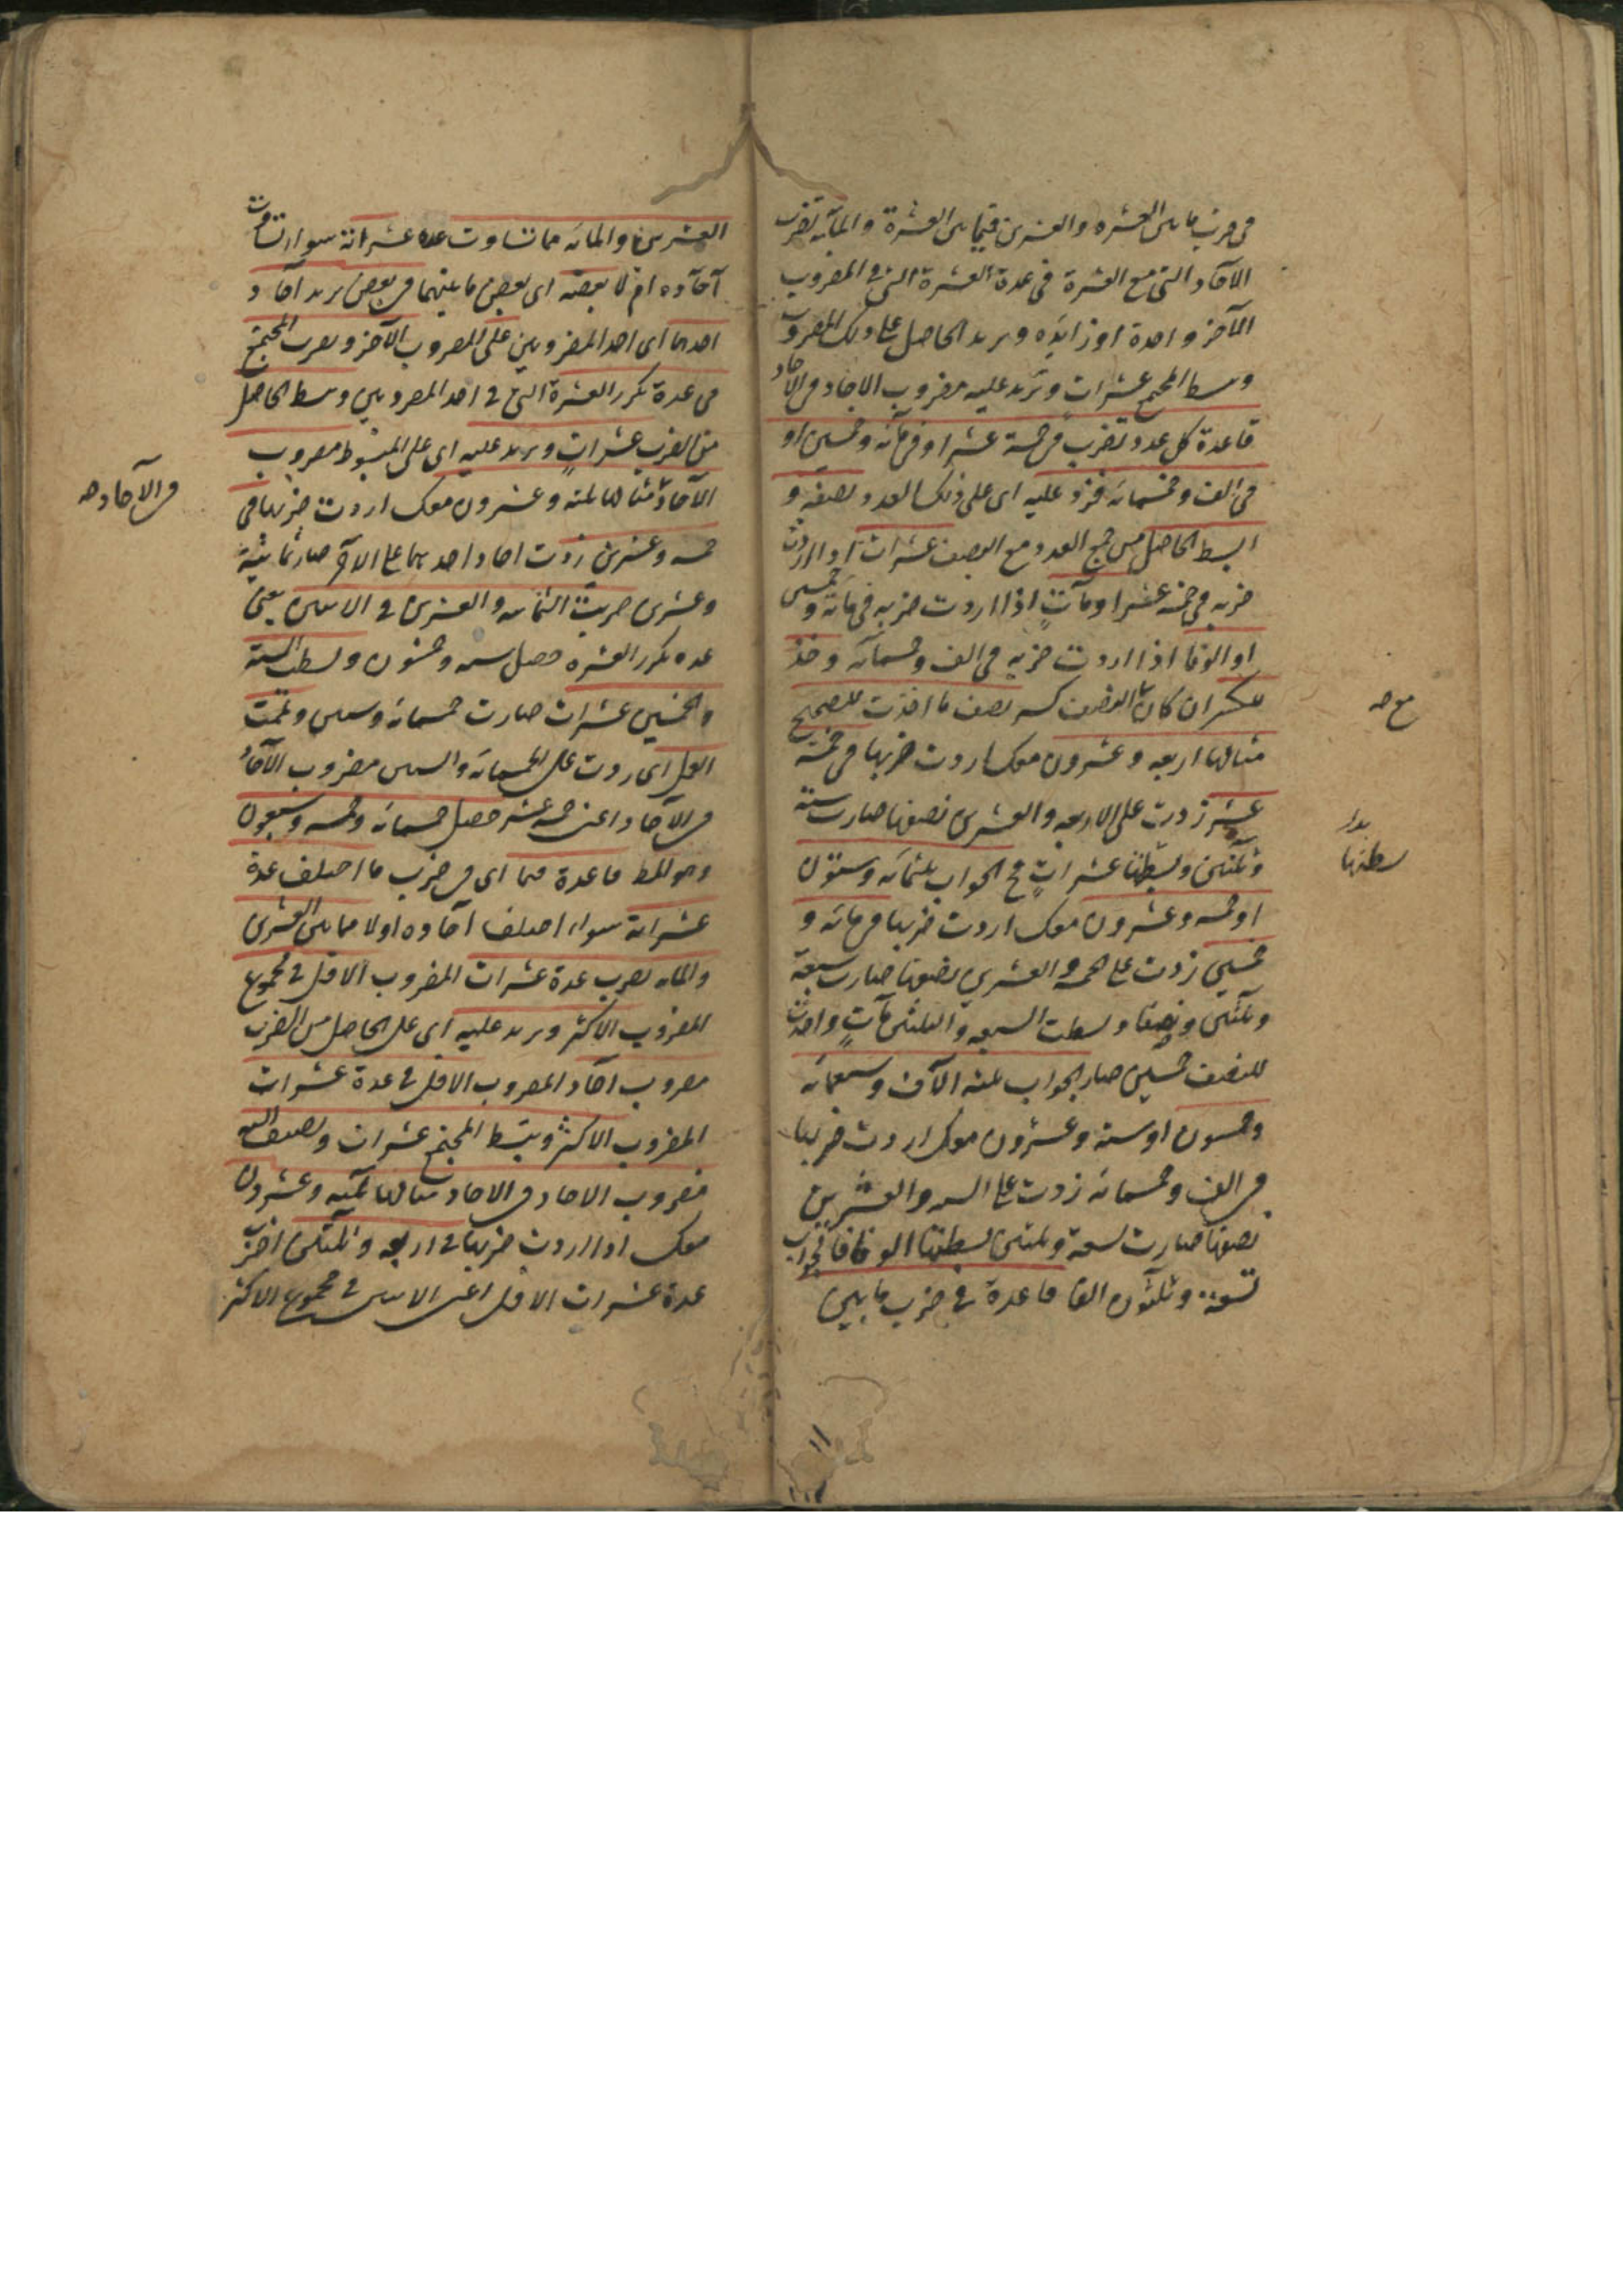 فى ضرب ما بين العشره والعشرين فيما بين العشرة والمائه تضرب
الآحاد التى مع العشرة فى عدة العشرة التى فى المضروب
الآخر واحدة او زايده وتزيد الحاصل على ذلك المضروب
وتبسط المجتمع عشرات وتزيد عليه مضروب الاحاد فى الاحاد
قاعدة كل عدد تضرب فى خمسة عشر او فى مائه وخمسين او
فى الف وخمسمائه فزد عليه اى على ذلك العدد نصفه و
ابسط الحاصل من جمع العدد مع النصف عشرات اذا اردت
ضربه فى خمسه عشر او مآت اذا اردت ضربه فى مائه وخمسين
او الوفا اذا اردت ضربه فى الف وخمسمائه وخذ
للكسر ان كان مع النصف كسر نصف ما اخذت للصحيح
مثالها اربعه وعشرون معك اردت ضربها فى خمسة
عشر زدت على الاربعه والعشرين نصفها صارت ستة
وثلثين وبسطتها عشرات فالجواب ثلثمائه وستون
او خمسه وعشرون معك اردت ضربها فى مائه و
خمسين زدت على الخمسه والعشرين نصفها صارت سبعة
وثلثين ونصفا وبسطت السبعه والثلثين مآت واخذت
للنصف خمسين صار الجواب ثلثه الآف وسبعمائه
وخمسون او سته وعشرون معك اردت ضربها
فى الف وخمسمائه زدت على السته والعشرين
نصفها صارت تسعة وثلثين بسطتها الوفا فالجواب
تسعة وثلثون الفا قاعدة فى ضرب ما بين
مع صه
بدل
بسطتها
العشرين والمائه مما تساوت عده عشراته سواء تساوت
آحاده ام لا بعضه اى بعض ما بينهما فى بعض تزيد آحاد
احدهما اى احد المضروبين على المضروب الآخر وتضرب المجتمع
فى عدة تكرر العشرة التى فى احد المضروبين وتبسط الحاصل
من الضرب عشرات وتزيد عليه اى على المبسوط مضروب
الآحاد مثالها ثلثه وعشرون معك اردت ضربها فى
خمسه وعشرين زدت احاد احدهما على الآخر صار ثمانية
وعشرين ضربت الثمانيه والعشرين فى الاثنين يعنى
عده تكرر العشره حصل سته وخمسون وبسطت الستة
والخمسين عشرات صارت خمسمائه وستين وتممت
العمل اى زدت على الخمسمائه والستين مضروب الآحاد
فى الآحاد اعنى خمسه عشر حصل خمسمائه وخمسه وسبعون
وهو المط قاعدة فيما اى فى ضرب ما اختلف عدة
عشراته سواء اختلف آحاده اولا مما بين العشرين
والمائه تضرب عدة عشرات المضروب الاقل فى مجموع
المضروب الاكثر وتزيد عليه اى على الحاصل من الضرب
مضروب آحاد المضروب الاقل فى عدة عشرات
المضروب الاكثر وتبسط المجتمع عشرات وتضيف اليه
مضروب الاحاد فى الاحاد مثالها ثلثه وعشرون
معك اذا اردت ضربها فى اربعه وثلثين اضرب
عدة عشرات الاقل اعنى الاثنين فى مجموع الاكثر
فى الآحاد صه
١١